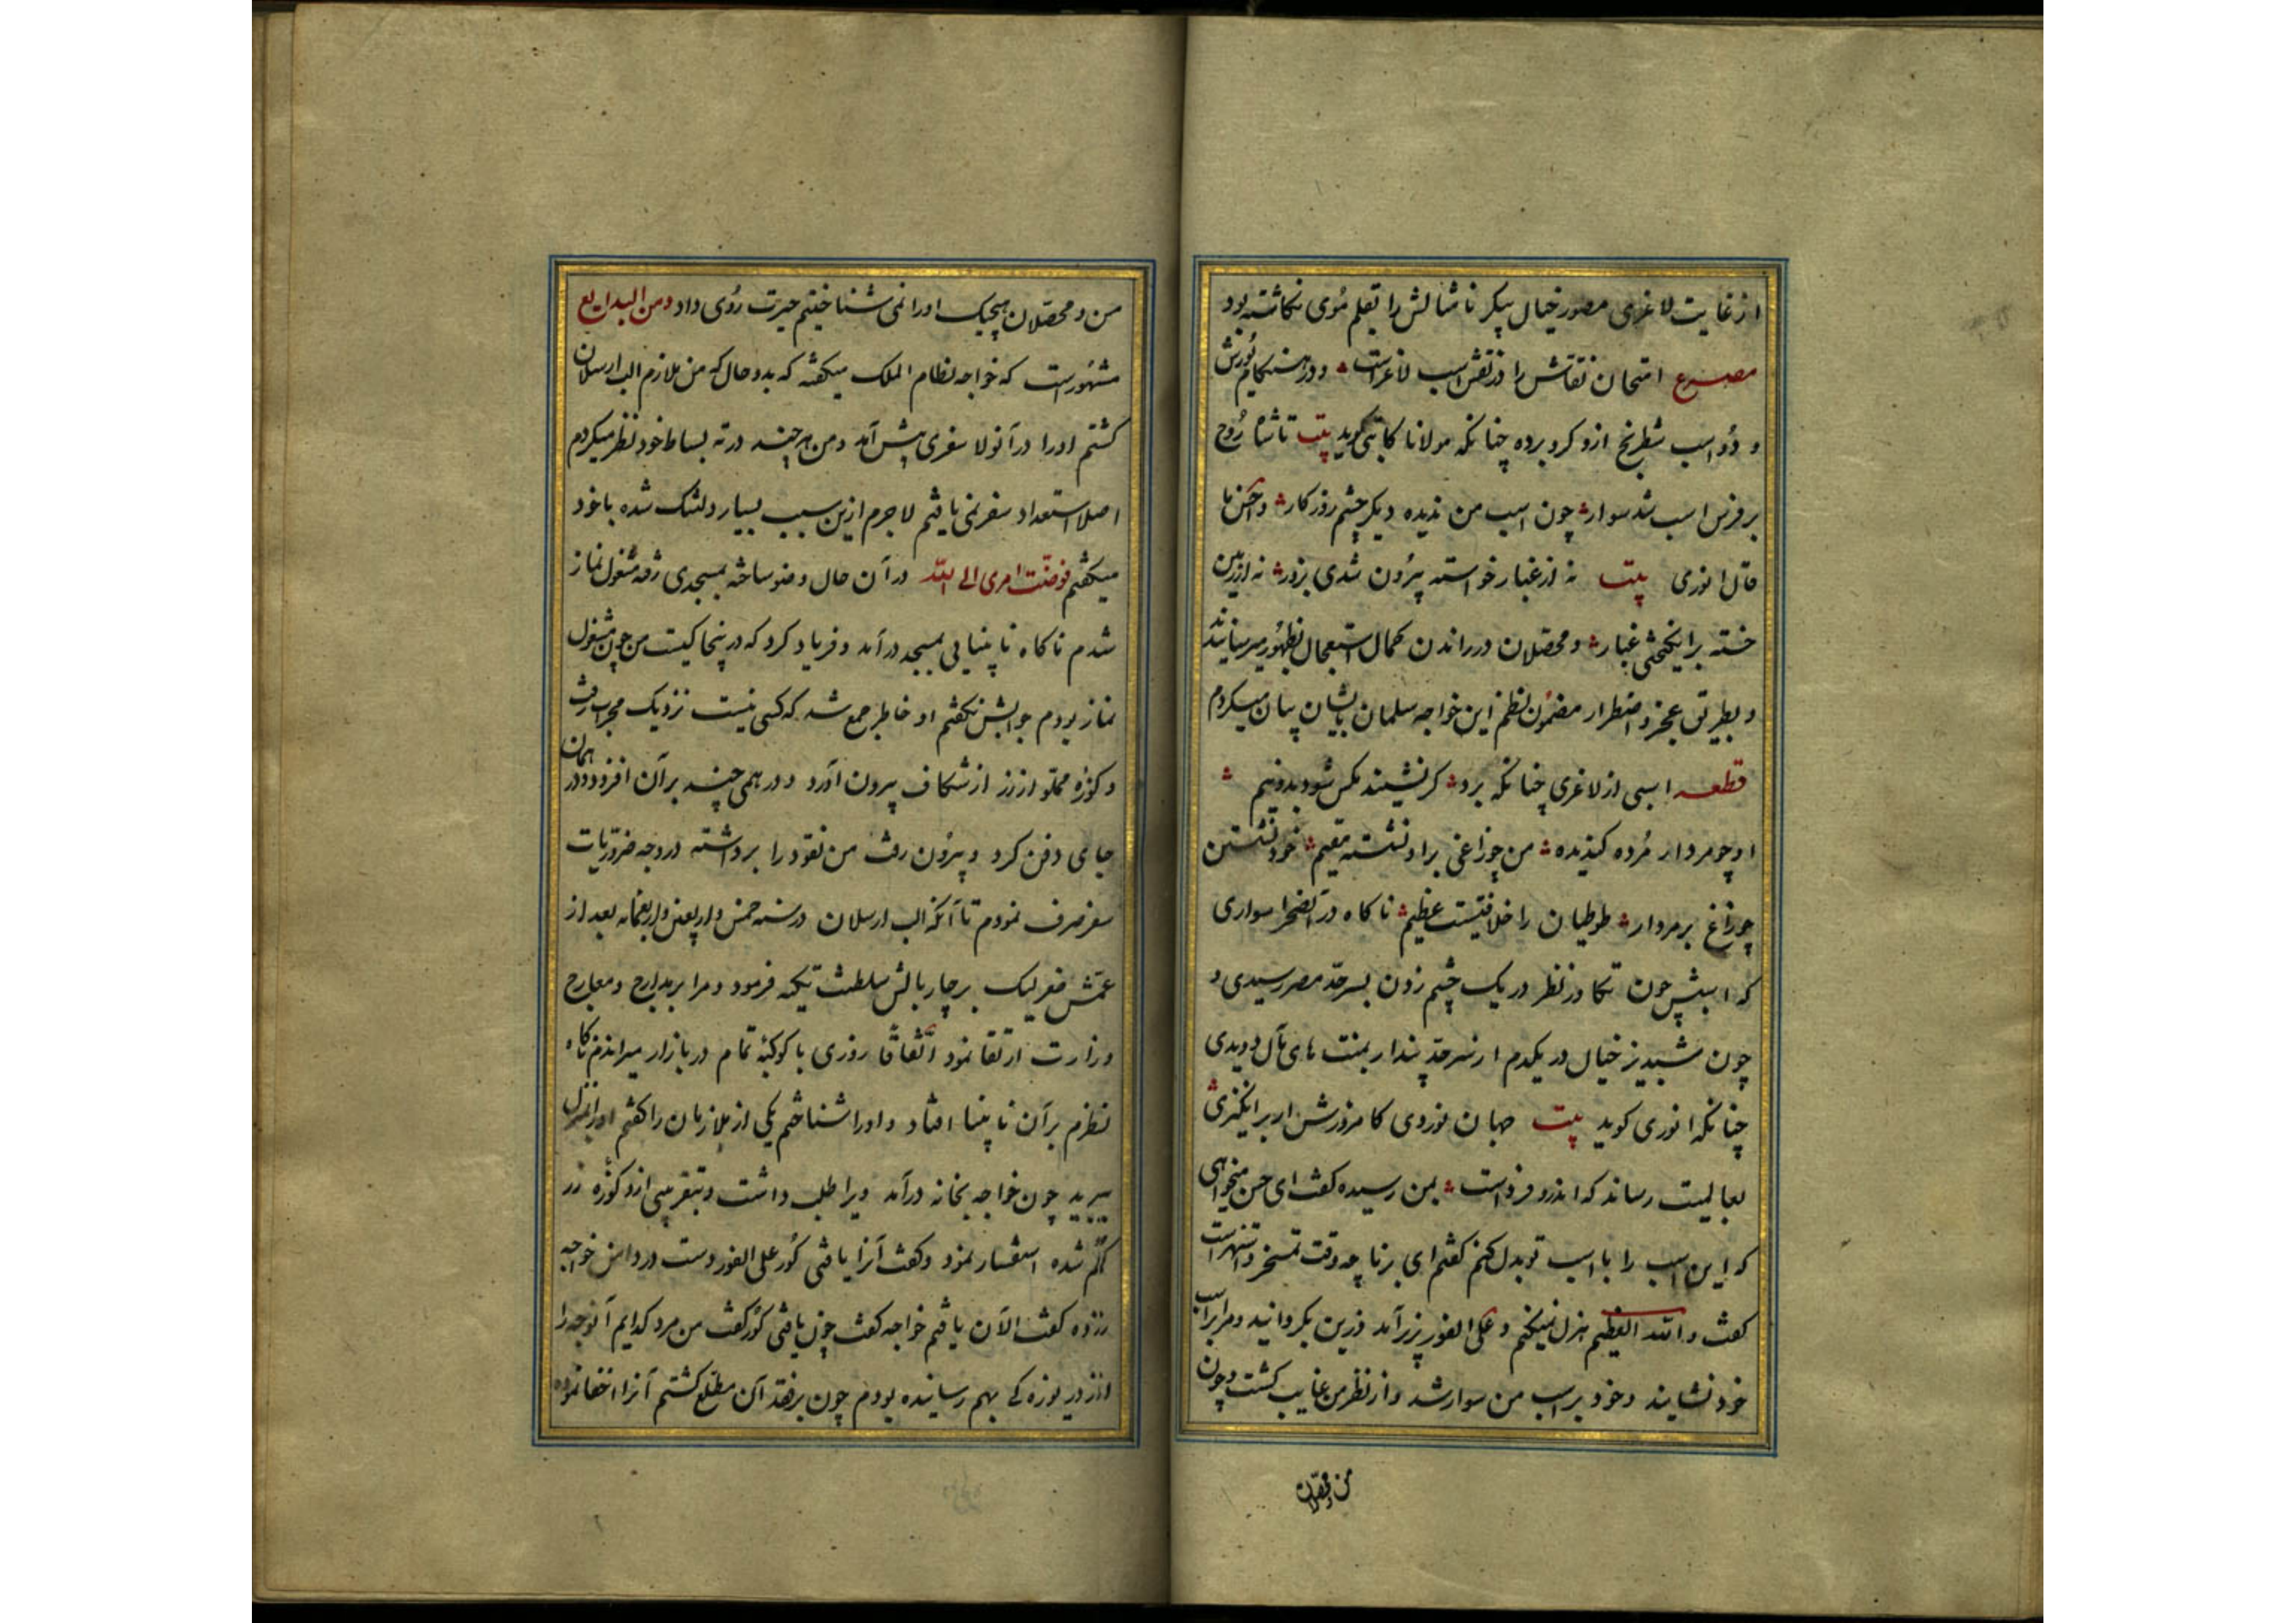 از غایت لاغری مصور خیال پیکر ناشالش را بقلم موی نکاشته بود
مصرع امتحان نقاش را در نقش اسب لاغراست و در هنکام یورش
و دو اسب شطرنج ازو کرو برده چنانکه مولانا کاتبی کوید بیت تا شاه روح
بر فرس اسب شد سوار چون اسب من ندیده دیکر چشم روزکار و احسن ما
قال انوری بیت نه از غبار خواسته بیرون شدی بزور نه از زمین
خسته برانیکختی غبار و محصلان در راندن کمال استعجال بظهور میرسانیدند
و بطریق عجز و اضطرار مضمون نظم این خواجه سلمان بایشان بیان میکردم
قطعه اسبی از لاغری چنانکه برو کر نشیند مکس شود بدو نیم
او چو مردار مرده کندیده من چو زاغی براو نشسته مقیم خود نشستن
چو زاغ بر مردار طوطیان را خلافتیست عظیم ناکاه در آن صحرا سواری
که اسبش چون تکاور نظر در یک چشم زدن بسرحد مصر رسیدی و
چون شبدیز خیال در یکدم از سرحد پندار بمنتهای آمال دویدی
چنانکه انوری کوید بیت جهان نوردی کامروزش ار برانکیزی
بعالمیت رساند که اندرو فرداست بمن رسیده کفت ای حسن میخواهی
که این اسب را با اسب تو بدل کنم کفتم ای برنا چه وقت تمسخر و تنهراست
کفت والله العظیم هزل نمیکنم و علی الفور بزیر آمد و زین بکردانید و مرا براسب
خود نشانید و خود بر اسب من سوار شد و از نظر من غایب کشت و چون
من و محصلان
من و محصلان هیچیک او را نمی شناختیم حیرت روی داد و من البدایع
مشهوراست که خواجه نظام الملک میکفته که بدو حال که من ملازم الب ارسلان
کشتم او را در آنولا سفری پیش آمد و من هر چند در ته بساط خود نظر میکردم
اصلا استعداد سفر نمی یافتم لاجرم ازین سبب بسیار دلتنک شده با خود
میکفتم فوضت امری الی الله در آن حال وضو ساخته بمسجدی رفته مشغول نماز
شدم ناکاه نابینایی بمسجد درآمد و فریاد کرد که در ینجا کیست من چون مشغول
نماز بودم جوابش نکفتم او خاطر جمع شد که کسی نیست نزدیک محراب رفت
و کوزه مملو از زر از شکاف بیرون آورد و درهمی چند بر آن افزود و در همان
جای دفن کرد و بیرون رفت من نقود را برداشته در وجه ضروریات
سفر صرف نمودم تا آنکه الب ارسلان در سنه خمس و اربعین و اربعمائه بعد از
عمش طغرلبک بر چار بالش سلطنت تکیه فرمود و مرا بر مدارج و معارج
وزارت ارتقا نمود اتفاقا روزی با کوکبه تمام در بازار میراندم ناکاه
نظرم بر آن نابینا افتاد و او را شناختم یکی از ملازمان را کفتم او را بمنزل
ببرید چون خواجه بخانه درآمد ویرا طلب داشت و بتقریبی ازو کوزه زر
کم شده استفسار نمود و کفت آنرا یافتی کور علی الفور دست در دامن خواجه
زده کفت الآن یافتم خواجه کفت چون یافتی کور کفت من مرد کدایم آنوجه را
از دریوزه کی بهم رسانیده بودم چون بر فقد آن مطلع کشتم آنرا اخفا نموده